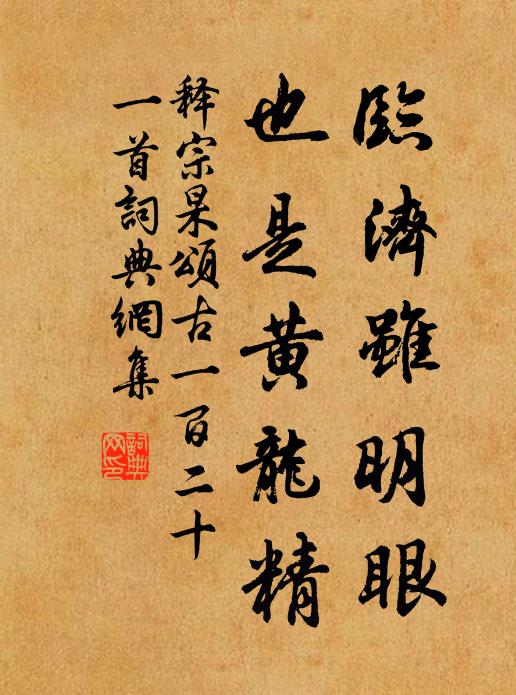 臨濟雖明眼
也是黄龍精
释宗杲頌古一百二十
一首詞典網集
詞典网印